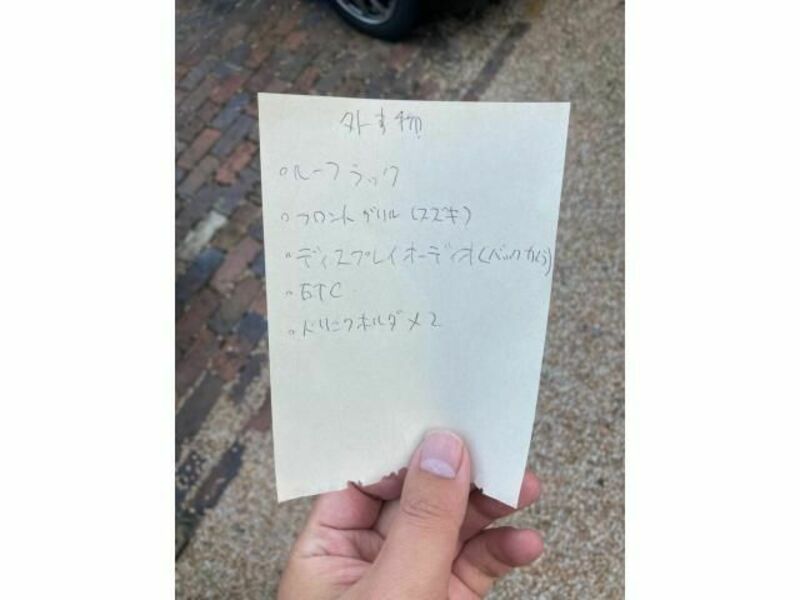 外す物
◦ルーフラック
◦フロントグリル(スズキ)
◦ディスプレイオーディオ(バックカメラ)
◦ETC
◦ドリンクホルダ×2